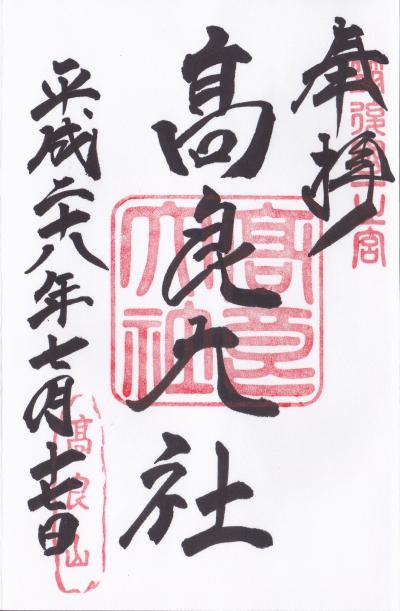 奉拝
筑後國一之宮
髙良大社
高良大社
平成二十八年七月十七日
髙良山